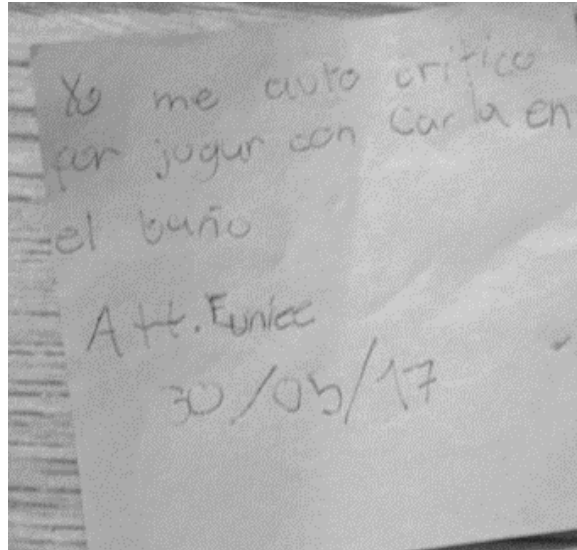 Yo me auto critico
por jugur con Carla en
el baño
Att. Eunice
30/05/17